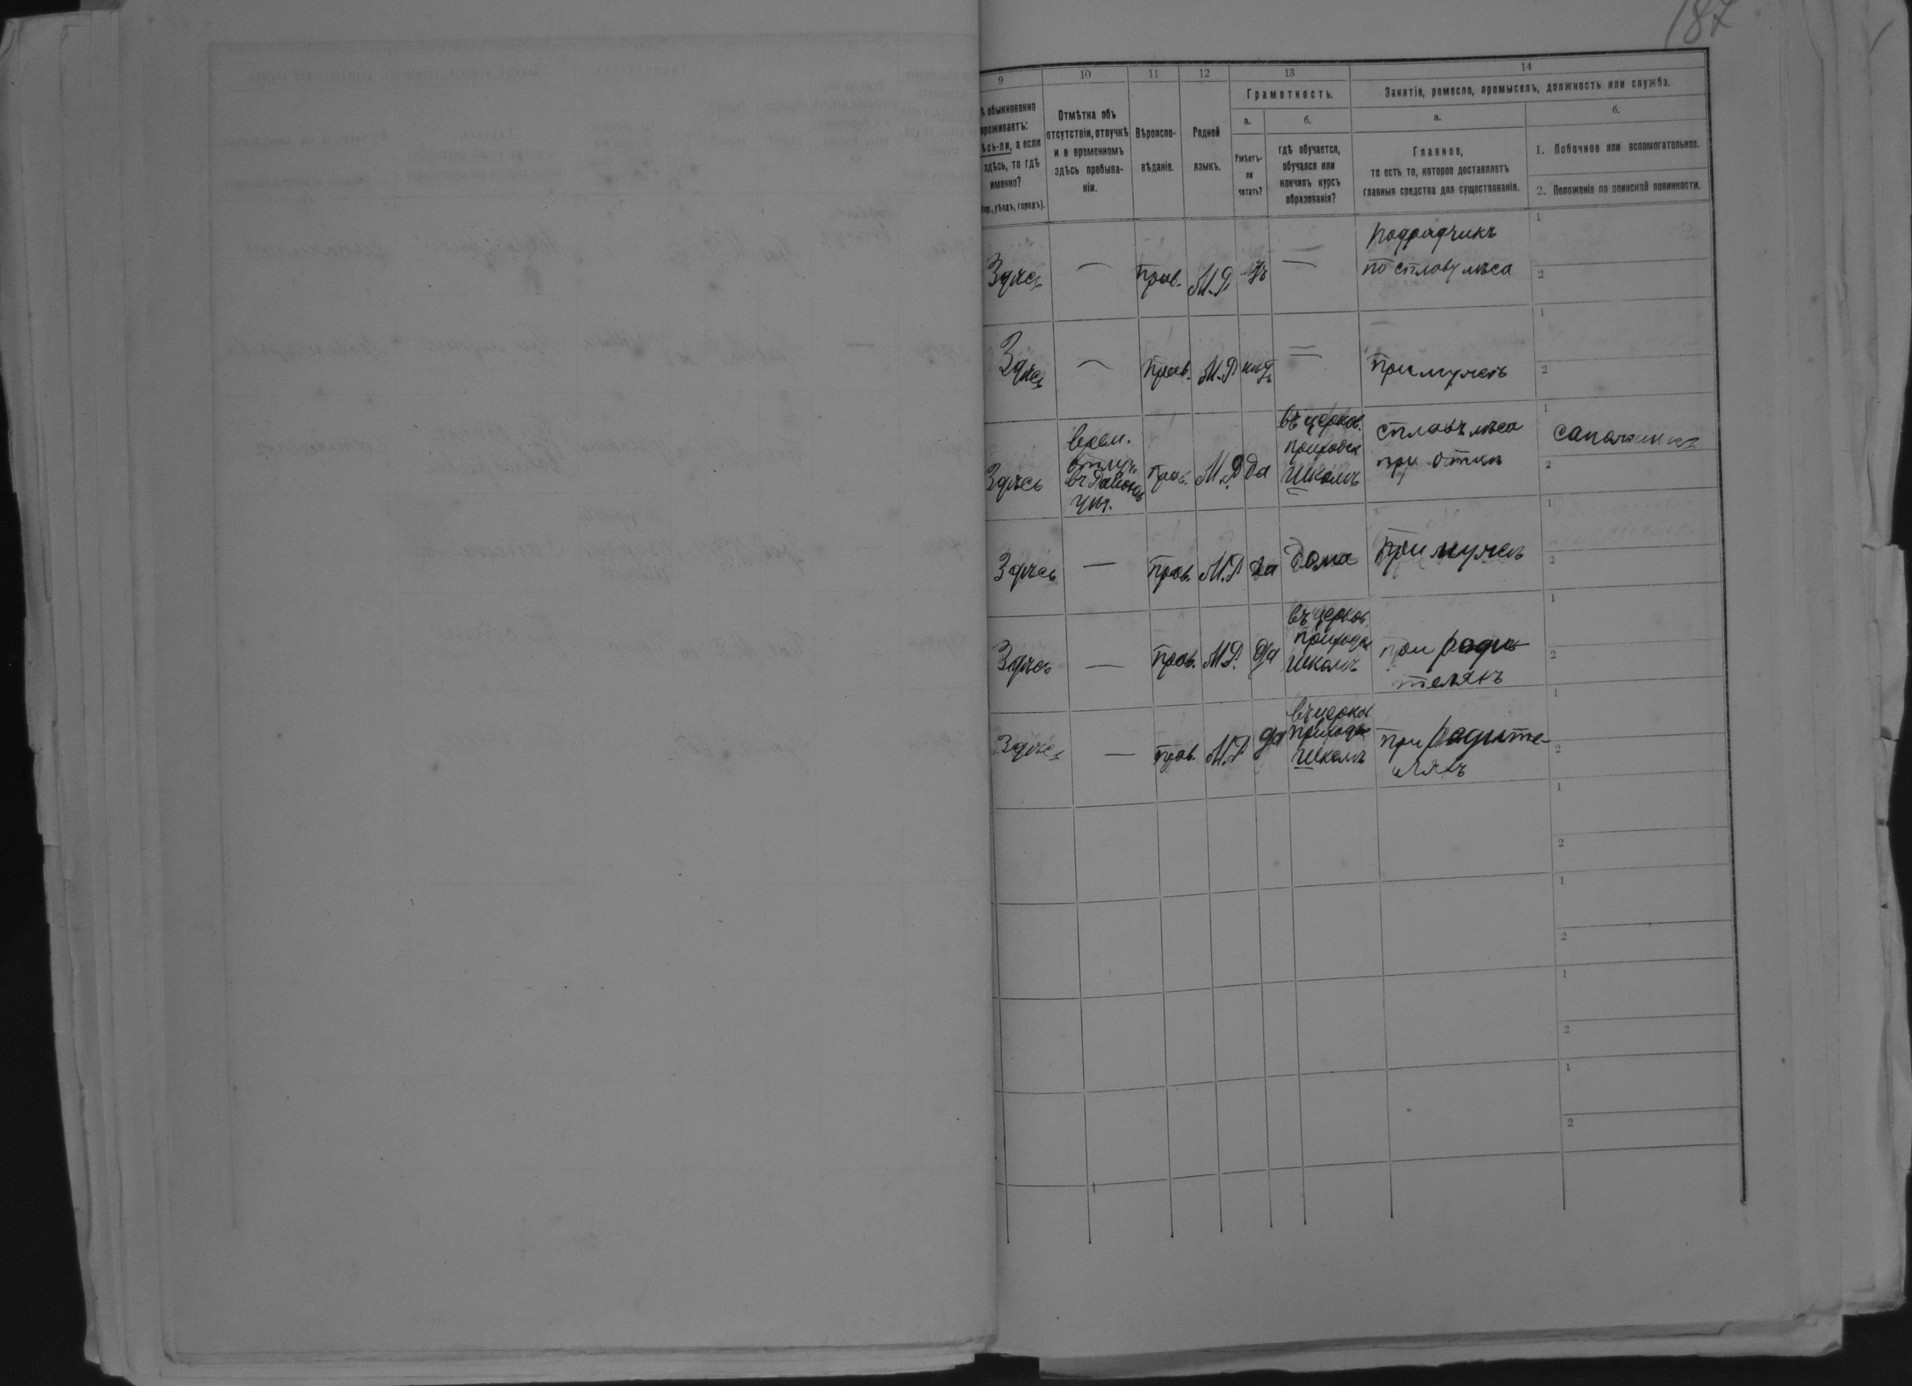 187
9 10 11 12 13 14
Грамотность.
Занятіе, ремесло, промыселъ, должность или служба.
обыкновенно
проживаетъ:
здѣсь-ли, а если
здѣсь, то гдѣ
именно?
уѣздъ, городъ).
Отмѣтка объ
отсутствіи, отлучкѣ
и о временномъ
здѣсь пребыва-
ніи.
Вѣроиспо-
вѣданіе.
Родной
языкъ.
а.
Умѣетъ-
ли
читать?
б.
гдѣ обучается,
обучался или
кончилъ курсъ
образованія?
а.
Главное,
то есть то, которое доставляетъ
главныя средства для существованія.
б.
1. Побочное или вспомогательное.
2. Положеніе по воинской повинности.
Здѣсь — прав. М.Р. —
Подрядчикъ
по сплаву лѣса
1
2
Здѣсь — прав. М.Р. нѣтъ —
при мужѣ
1
2
Здѣсь
въ
прав. М.Р. да
въ церков.
приходск
школѣ
сплавъ лѣса
при отцѣ
1
сапожникъ
2
Здѣсь — прав. М.Р. да дома при мужѣ
1
2
Здѣсь — прав. М.Р. да
въ церков.
приходск
школѣ
при роди-
теляхъ
1
2
Здѣсь — прав. М.Р. да
въ церков
приходск
школѣ
при родите-
ляхъ
1
2
1
2
1
2
1
2
1
2